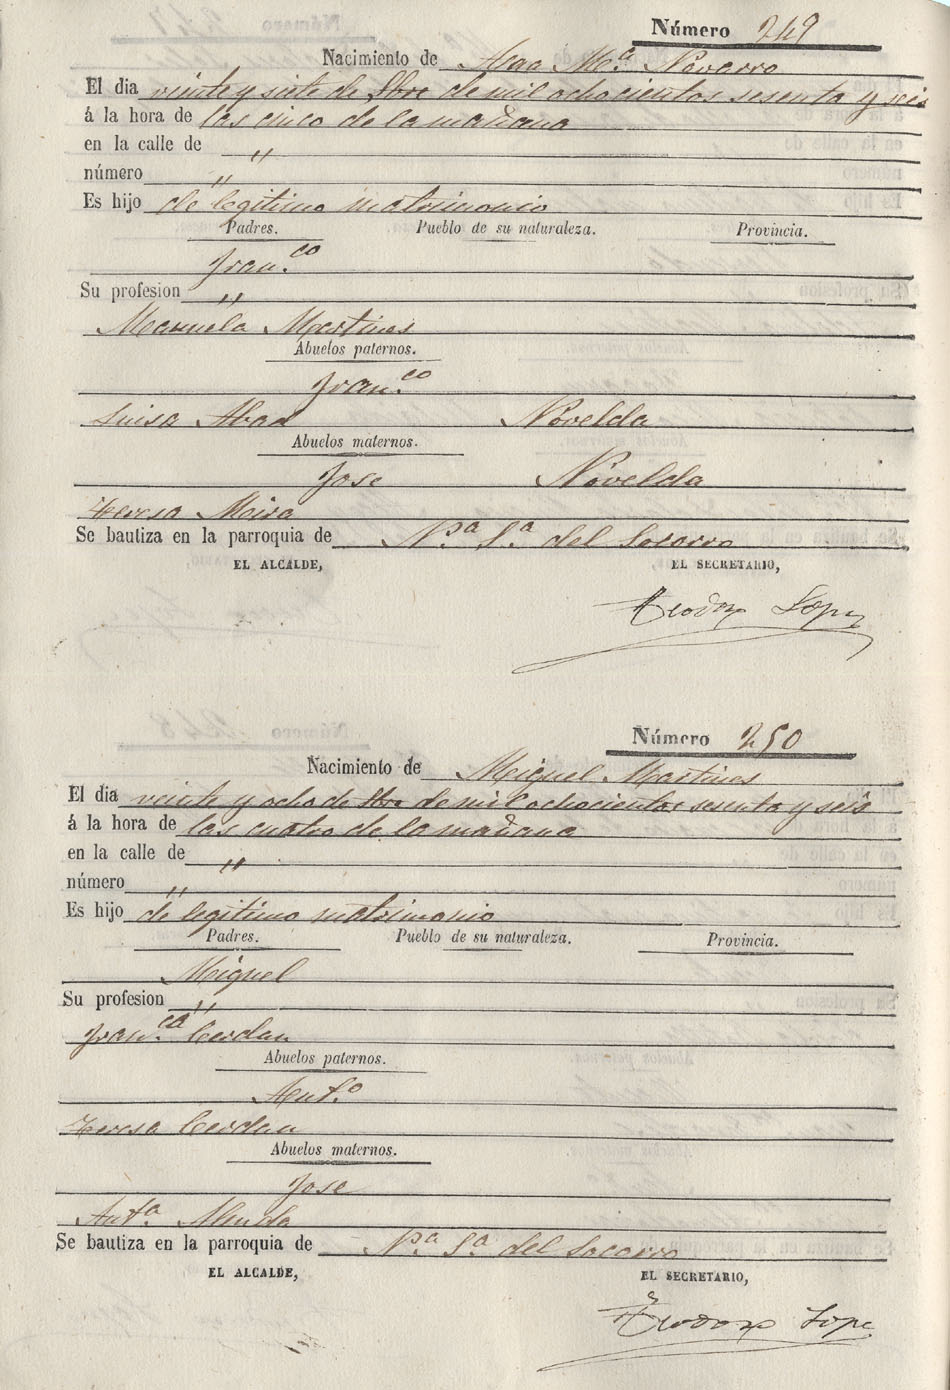 Número 249
Nacimiento de Ana M.ª Navarro
El dia veinte y siete de 8bre de mil ochocientos sesenta y seis
á la hora de las cinco de la mañana
en la calle de "
número "
Es hijo de legitimo matrimonio
Padres. Pueblo de su naturaleza. Provincia.
Fran.co
Su profesion "
Manuela Martines
Abuelos paternos.
Fran.co
Luisa Abad Novelda
Abuelos maternos.
Jose Novelda
Teresa Mira
Se bautiza en la parroquia de N.ª S.ª del Socorro
EL ALCALDE, EL SECRETARIO,
Teodoro Lopez
Número 250
Nacimiento de Miguel Martines
El dia veinte y ocho de 8bre de mil ochocientos sesenta y seis
á la hora de las cuatro de la mañana
en la calle de "
número "
Es hijo de legitimo matrimonio
Padres. Pueblo de su naturaleza. Provincia.
Miguel
Su profesion "
Fran.ca Cerdan
Abuelos paternos.
Ant.o
Teresa Cerdan
Abuelos maternos.
Jose
Ant.a
Se bautiza en la parroquia de N.ª S.ª del Socorro
EL ALCALDE, EL SECRETARIO,
Teodoro Lopez